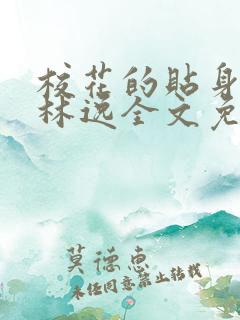 校花的贴身
林逸全文免
莫德惠
未经同意禁止转载